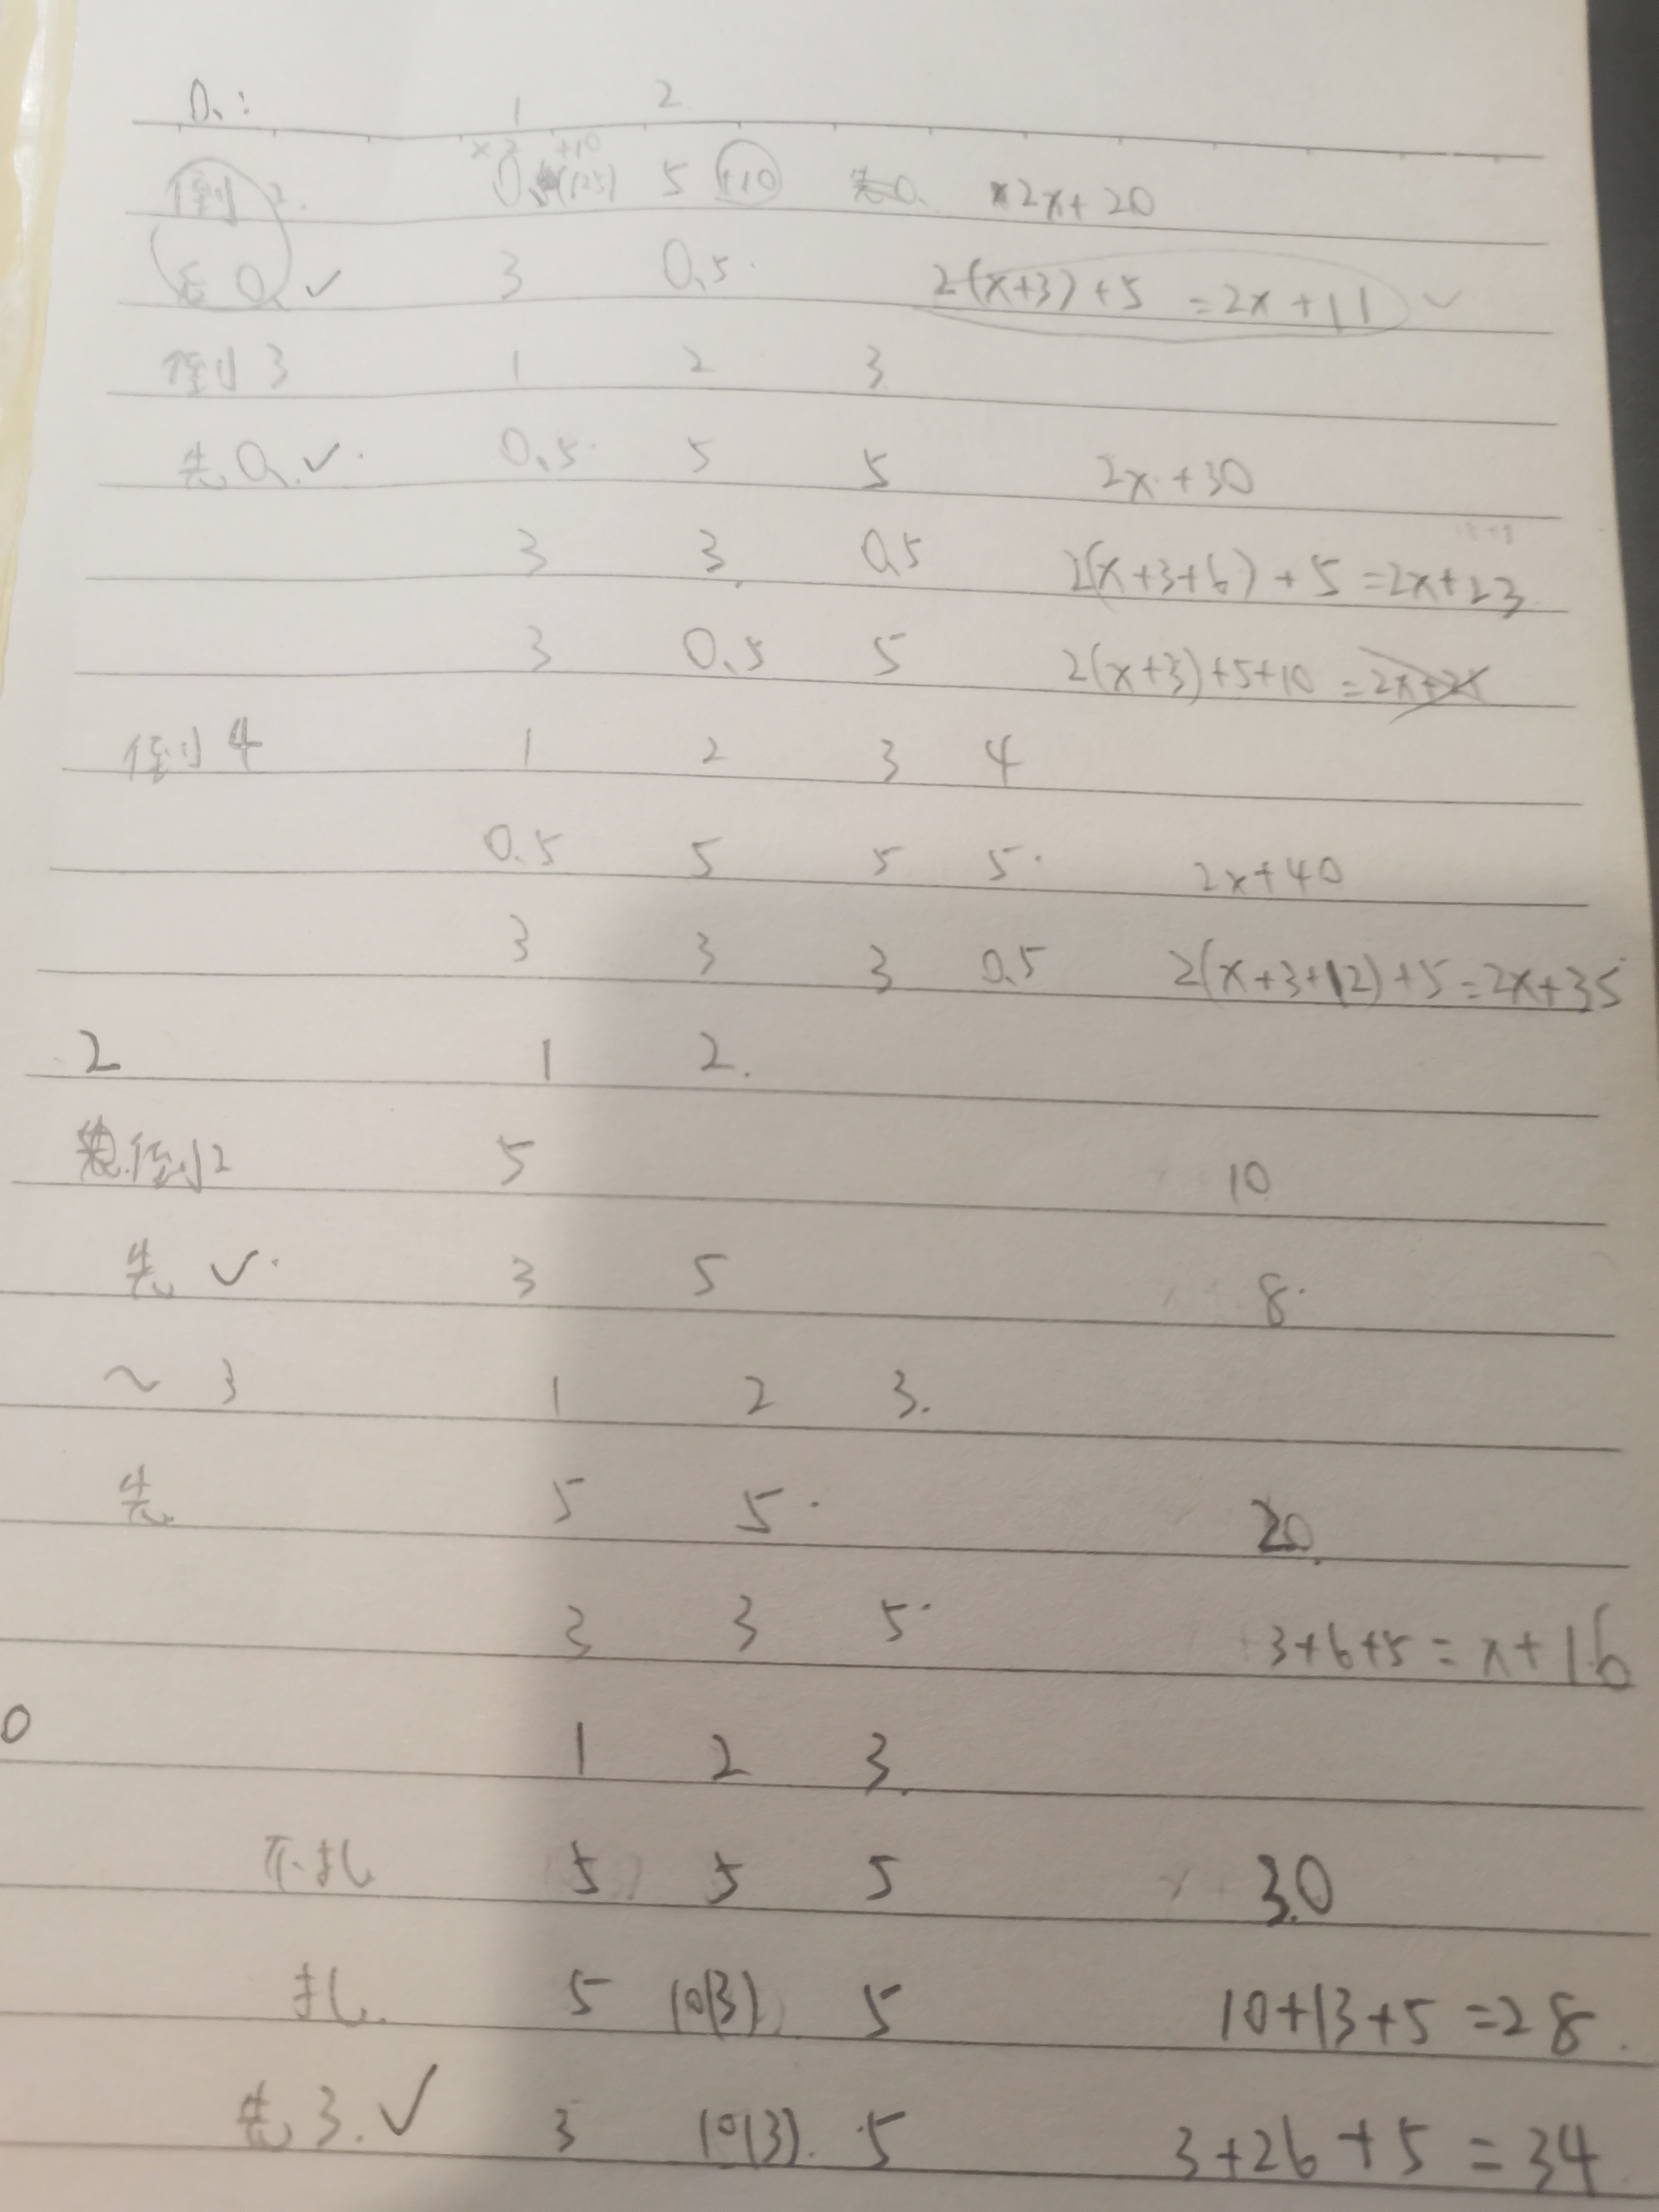 0、: 1 2
×2 +10
倒2. 0.5(125) 5 +10 2x+20
先0 ✓ 3 0.5. 2(x+3)+5 =2x+11 ✓
倒3 1 2 3
先0 ✓. 0.5. 5 5 2x+30
3 3 0.5 2(x+3+6)+5=2x+23
3 0.5 5 2(x+3)+5+10=2x+21
倒4 1 2 3 4
0.5 5 5 5. 2x+40
3 3 3 0.5 2(x+3+12)+5=2x+35
2 1 2.
倒2 5 10
先 ✓. 3 5 8.
~ 3 1 2 3.
先 5 5. 20
3 3 5. 3+6+5=x+16
0 1 2 3.
不扎 5 5 5 30
扎. 5 10(3) 5 10+13+5=28.
先3.✓ 3 10(3). 5 3+26+5=34